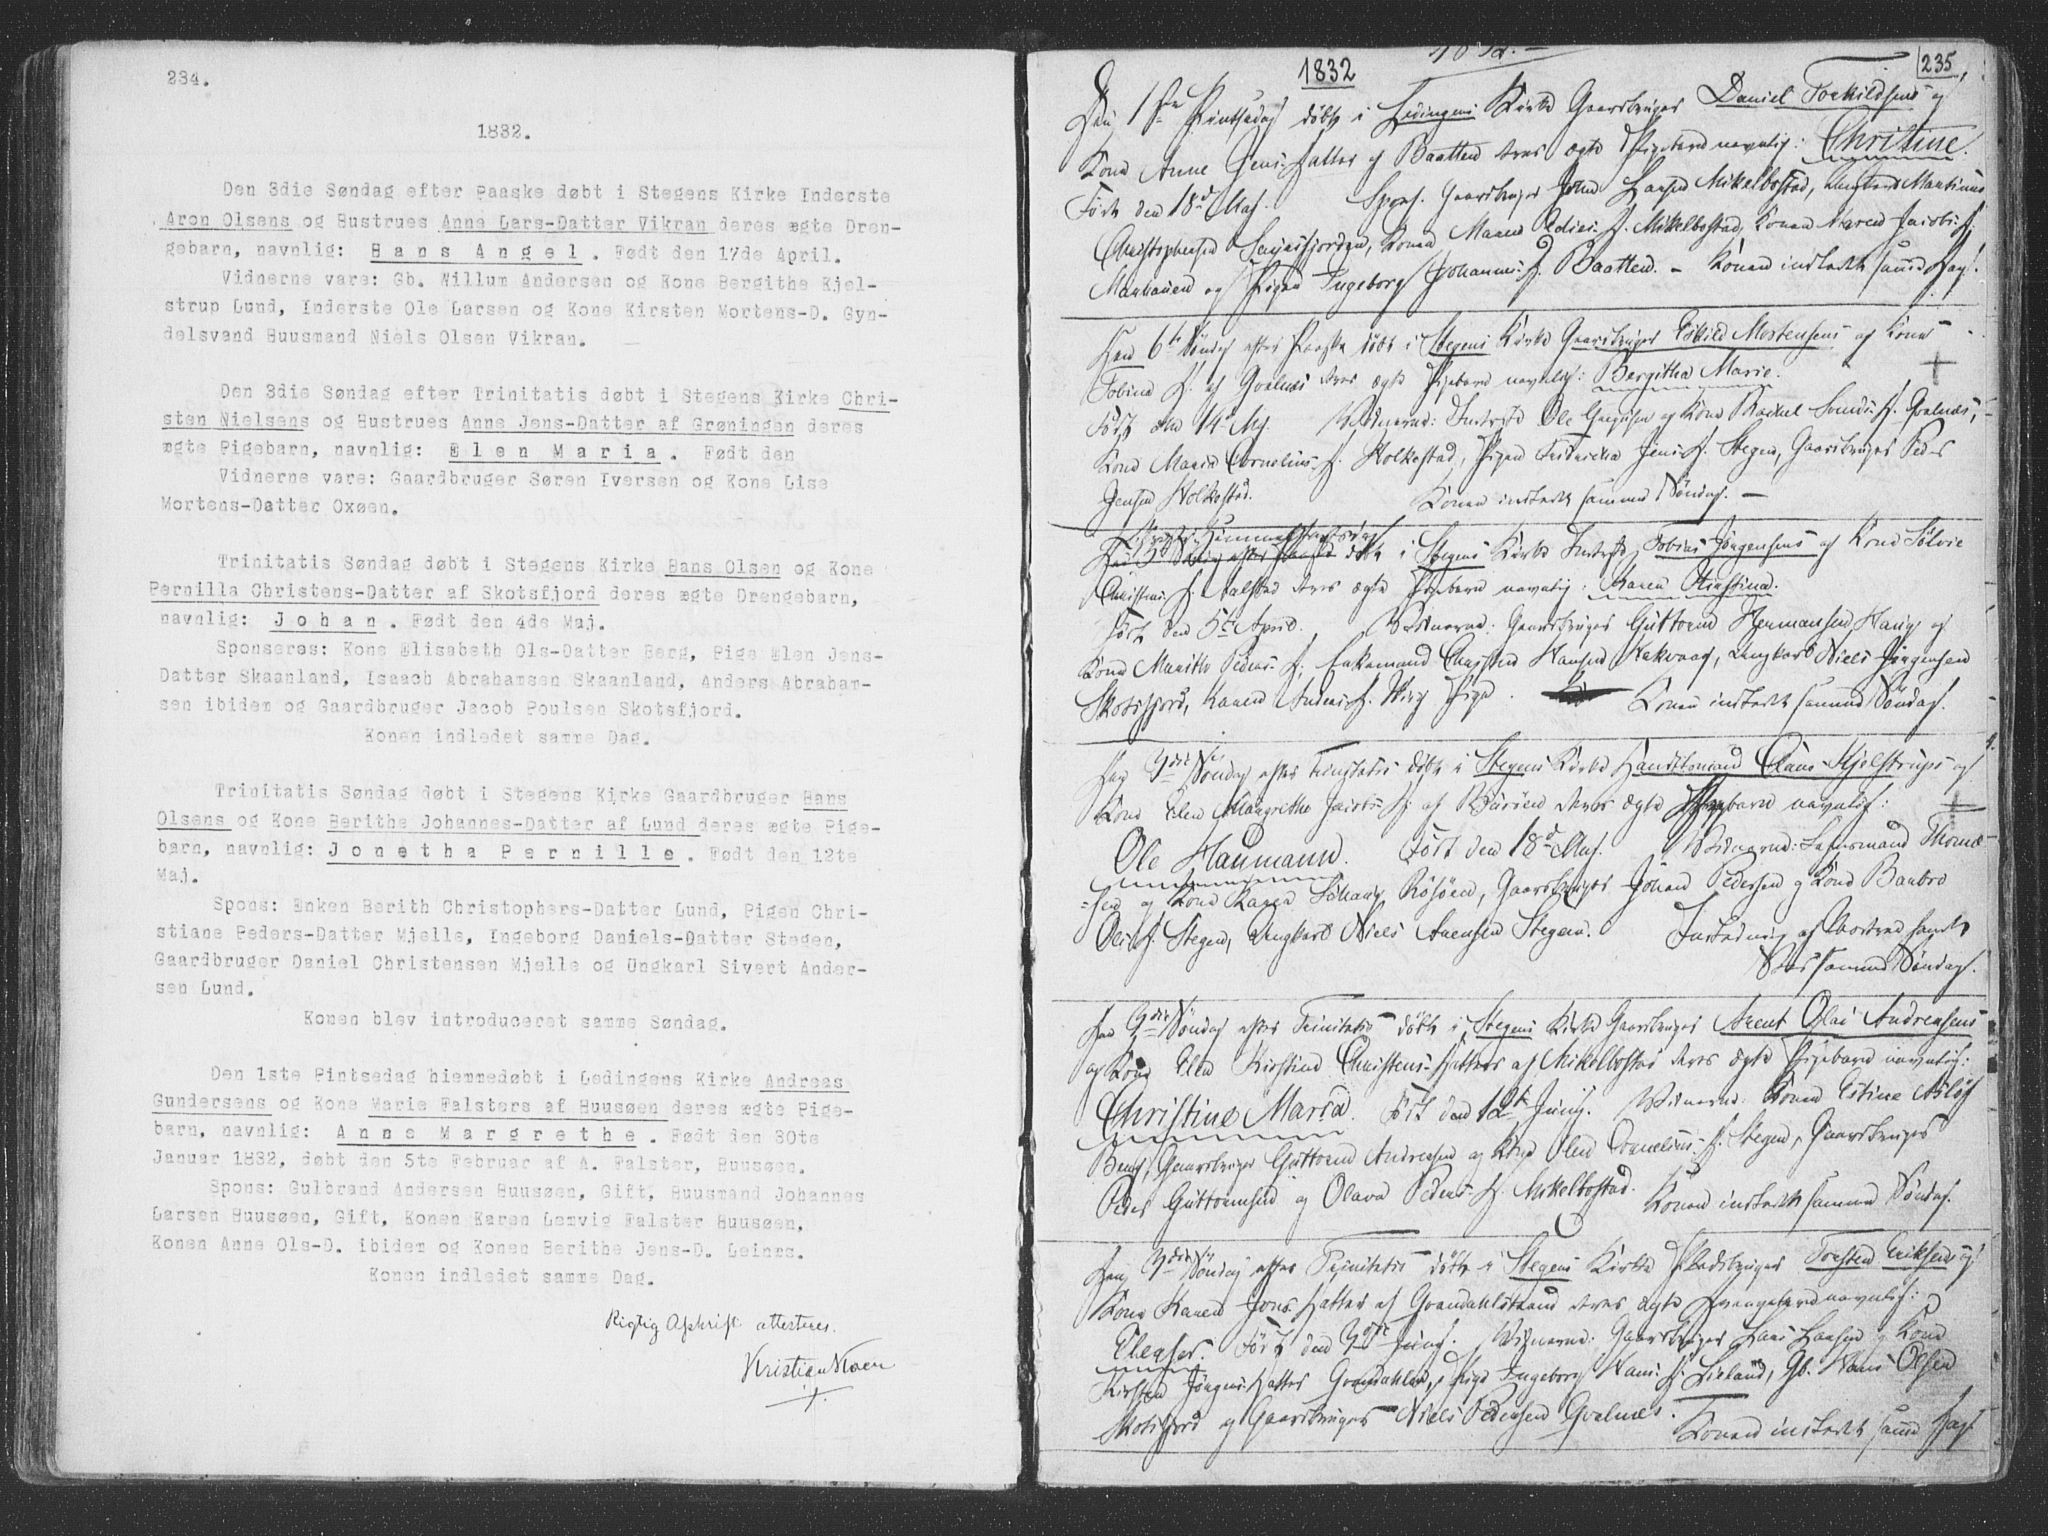 234.
1832.
Den 3die Søndag efter Paaske døbt i Stegens Kirke Inderste
Aron Olsens og Hustrues Anne Lars-Datter Vikran deres ægte Dren-
gebarn, navnlig: Hans Angel. Født den 17de April.
Vidnerne vare: Gb. Willum Andersen og Kone Bergithe Kjel-
strup Lund, Inderste Ole Larsen og Kone Kirsten Mortens-D. Gyn-
delsvand Huusmand Niels Olsen Vikran.
Den 3die Søndag efter Trinitatis døbt i Stegens Kirke Chri-
sten Nielsens og Hustrues Anne Jens-Datter af Grøningen deres
ægte Pigebarn, navnlig: Elen Maria. Født den
Vidnerne vare: Gaardbruger Søren Iversen og Kone Lise
Mortens-Datter Oxøen.
Trinitatis Søndag døbt i Stegens Kirke Hans Olsen og Kone
Pernilla Christens-Datter af Skotsfjord deres ægte Drengebarn,
navnlig: Johan. Født den 4de Maj.
Sponseres: Kone Elisabeth Ols-Datter Berg, Pige Elen Jens-
Datter Skaanland, Isaach Abrahamsen Skaanland, Anders Abraham-
sen ibidem og Gaardbruger Jacob Poulsen Skotsfjord.
Konen indledet samme Dag.
Trinitatis Søndag døbt i Stegens Kirke Gaardbruger Hans
Olsens og Kone Berithe Johannes-Datter af Lund deres ægte Pige-
barn, navnlig: Jonetha Pernille. Født den 12te
Maj.
Spons: Enken Berith Christophers-Datter Lund, Pigen Chri-
stiane Peders-Datter Mjelle, Ingeborg Daniels-Datter Stegen,
Gaardbruger Daniel Christensen Mjelle og Ungkarl Sivert Ander-
sen Lund.
Konen blev introduceret samme Søndag.
Den 1ste Pintsedag hiemmedøbt i Lødingens Kirke Andreas
Gundersens og Kone Marie Falsters af Huusøen deres ægte Pige-
barn, navnlig: Anne Margrethe. Født den 30te
Januar 1832, døbt den 5te Februar af A. Falster, Huusøen.
Spons: Gulbrand Andersen Huusøen, Gift, Huusmand Johannes
Larsen Huusøen, Gift, Konen Karen Lemvig Falster Huusøen,
Konen Anne Ols-D. ibidem og Konen Berithe Jens-D. Leines.
Konen indledet samme Dag.
Rigtig Afskrift attesteres.
Kristian Moen
1832
235
Den 1ste Pintsedag døbt i Ledingens Kirke Gaardbruger Daniel Torkildsens og
Kone Anne Jens-Datter af Baatten deres ægte Pigebarn navnlig: Christine.
Født den 18de Maj. Spons. Gaardbruger John Hansen Mikelbostad, Ungkarl Martinus
Christophersen Leinesfjorden, Konen Maren Edis D. Mikelbostad, Konen Maren Jacobs D.
og Pigen Ingeborg Johannes D. Baatten. - Konen indledet samme Dag.
Den 6te Søndag efter Paaske døbt i Stegens Kirke Gaardbruger Eskild Mortensens og Kone
Tobine D. af Qvalnæs deres ægte Pigebarn navnlig: Bergitha Marie.
Født den 14de Maj. Vidnerne: Inderste Ole og Kone Rachel D. Qvalnæs,
Kone Maria Cornelius D. Holkestad, Pigen Fredricka Jens D. Stegen, Gaardbruger Peder
Jensen Holkestad. Konen indledet samme Søndag. -
Christi Himmelfartsdag
døbt i Stegens Kirke Inderste Tobias Jørgensens og Kone Sølvie
Christens D. Aalstad deres ægte Pigebarn navnlig: Karen Kirstina.
Født den 5te April. Vidnerne: Gaardbruger Guttorm Hermansen Haug og
Kone Marithe Peders D., Enkemand Christen Hansen Nakvaag, Ungkarl Niels Jørgensen
Skotsfjord, Karen Anders D. Pige. Konen indledet samme Søndag.
Den 3die Søndag efter Trinitatis døbt i Stegens Kirke Handelsmand Claus Kjelstrups og
Kone Elen Margrethe Jacobs D. af deres ægte barn navnlig:
Ole Haumann. Født den 18de Maj. Vidnerne: Lensmand Thomæ-
sen og Kone Karen Røsøen, Gaardbruger Johan Pedersen og Kone Baabro
Ols D. Stegen, Ungkarl Niels Arensen Stegen.
samme Søndag.
Den 3die Søndag efter Trinitatis døbt i Stegens Kirke Gaardbruger Arent Olai Andreasens
og Kone Elen Kirstine Christens-Datter af Mikelbostad deres ægte Pigebarn navnlig:
Christine Maria. Født den 12te Junj. Vidnerne: Konen Estine Asløf
Gaardbruger Guttorm Andersen og Kone Elen Cornelius D. Stegen, Gaardbruger
Peder Guttormsen og Olava Peders D. Mikelbostad. Konen indledet samme Søndag.
Den 3die Søndag efter Trinitatis døbt i Stegens Kirke Pladsbruger Torsten Eriksens og
Kone Karen Jons Datter af Grøndahlstrand deres ægte Drengebarn navnlig:
Eleaser. Født den 3die Junj. Vidnerne: Gaardbruger Lars Larsen og Kone
Kirsten Jørgens-Datter Grøndahlen, Pige Ingeborg Hans D. Lieland, Gb. Hans Olsen
Skotsfjord og Gaardbruger Niels Pedersen Qvalnæs. Konen indledet samme Dag.